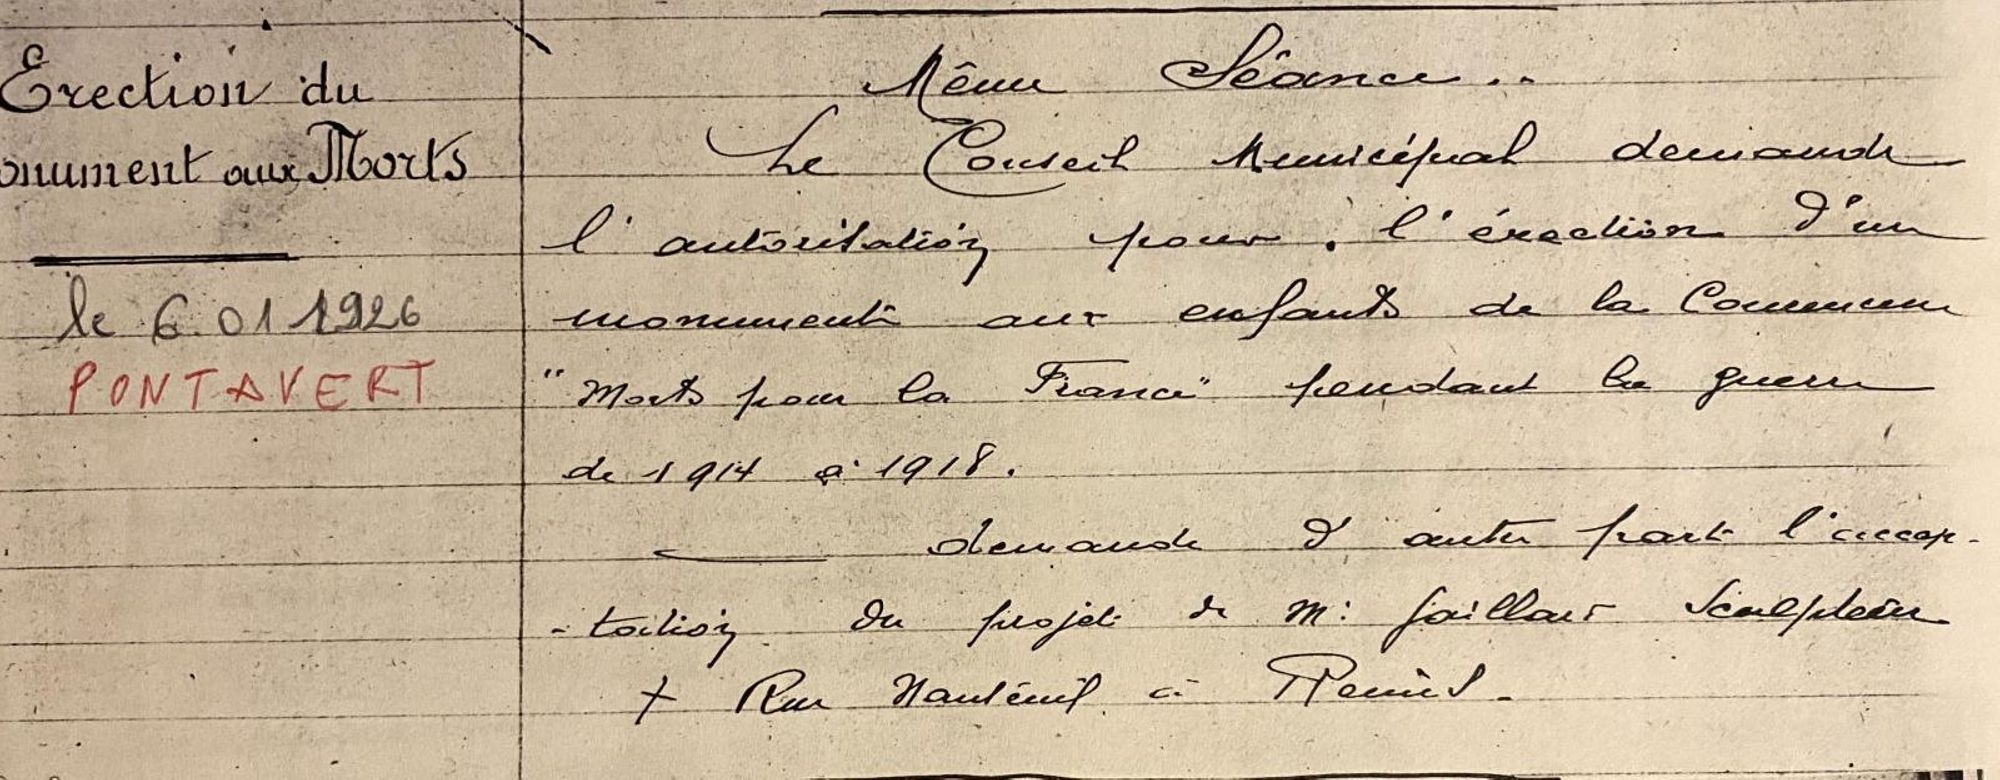 Erection du
onument aux Morts
le 6.01 1926
PONTAVERT
Même Séance..
Le Conseil Municipal demande
l'autorisation pour l'érection d'un
monument aux enfants de la Commune
"Morts pour la France" pendant la guerre
de 1914 à 1918.
demande d'autre part l'accep-
-tation du projet de M: Gaillard Sculpteur
+ Rue Nanteuil à Reims.